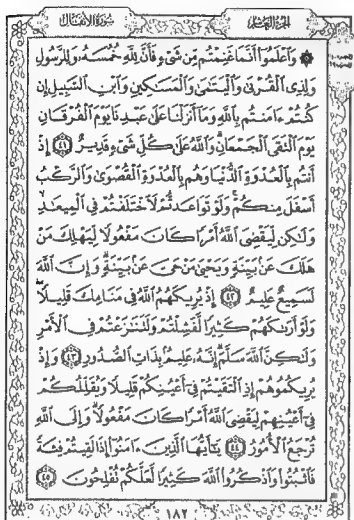 الجزء العاشر سورة الأنفال
۞ وَٱعْلَمُوٓا۟ أَنَّمَا غَنِمْتُم مِّن شَىْءٍ فَأَنَّ لِلَّهِ خُمُسَهُۥ وَلِلرَّسُولِ
وَلِذِى ٱلْقُرْبَىٰ وَٱلْيَتَٰمَىٰ وَٱلْمَسَٰكِينِ وَٱبْنِ ٱلسَّبِيلِ إِن
كُنتُمْ ءَامَنتُم بِٱللَّهِ وَمَآ أَنزَلْنَا عَلَىٰ عَبْدِنَا يَوْمَ ٱلْفُرْقَانِ
يَوْمَ ٱلْتَقَى ٱلْجَمْعَانِ ۗ وَٱللَّهُ عَلَىٰ كُلِّ شَىْءٍ قَدِيرٌ ٤١ إِذْ
أَنتُم بِٱلْعُدْوَةِ ٱلدُّنْيَا وَهُم بِٱلْعُدْوَةِ ٱلْقُصْوَىٰ وَٱلرَّكْبُ
أَسْفَلَ مِنكُمْ ۚ وَلَوْ تَوَاعَدتُّمْ لَٱخْتَلَفْتُمْ فِى ٱلْمِيعَٰدِ ۙ
وَلَٰكِن لِّيَقْضِىَ ٱللَّهُ أَمْرًا كَانَ مَفْعُولًا لِّيَهْلِكَ مَنْ
هَلَكَ عَنۢ بَيِّنَةٍ وَيَحْيَىٰ مَنْ حَىَّ عَنۢ بَيِّنَةٍ ۗ وَإِنَّ ٱللَّهَ
لَسَمِيعٌ عَلِيمٌ ٤٢ إِذْ يُرِيكَهُمُ ٱللَّهُ فِى مَنَامِكَ قَلِيلًا ۖ
وَلَوْ أَرَىٰكَهُمْ كَثِيرًا لَّفَشِلْتُمْ وَلَتَنَٰزَعْتُمْ فِى ٱلْأَمْرِ
وَلَٰكِنَّ ٱللَّهَ سَلَّمَ ۗ إِنَّهُۥ عَلِيمٌۢ بِذَاتِ ٱلصُّدُورِ ٤٣ وَإِذْ
يُرِيكُمُوهُمْ إِذِ ٱلْتَقَيْتُمْ فِىٓ أَعْيُنِكُمْ قَلِيلًا وَيُقَلِّلُكُمْ
فِىٓ أَعْيُنِهِمْ لِيَقْضِىَ ٱللَّهُ أَمْرًا كَانَ مَفْعُولًا ۗ وَإِلَى ٱللَّهِ
تُرْجَعُ ٱلْأُمُورُ ٤٤ يَٰٓأَيُّهَا ٱلَّذِينَ ءَامَنُوٓا۟ إِذَا لَقِيتُمْ فِئَةً
فَٱثْبُتُوا۟ وَٱذْكُرُوا۟ ٱللَّهَ كَثِيرًا لَّعَلَّكُمْ تُفْلِحُونَ ٤٥
١٨٢